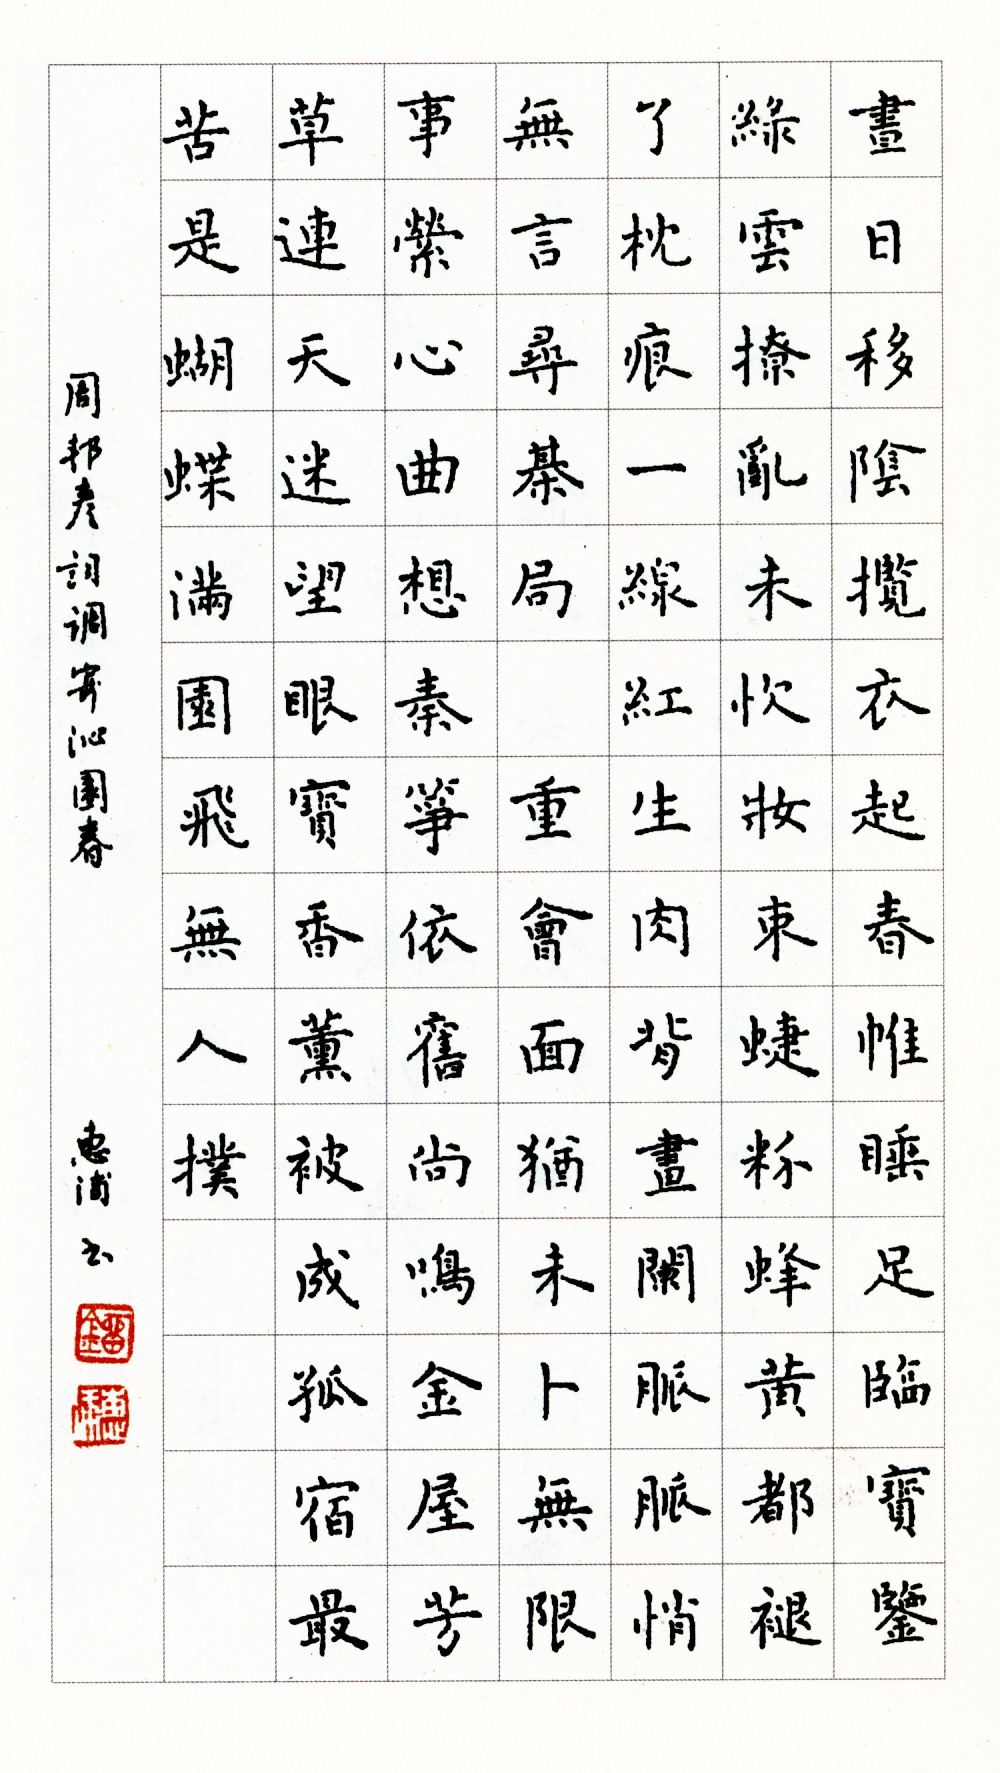 晝日移陰攬衣起春帷睡足臨寶鑒
綠雲撩亂未忺妝束蜨粉蜂黃都褪
了枕痕一線紅生肉背畫闌脈脈悄
無言尋棊局 重會面猶未卜無限
事縈心曲想秦箏依舊尚鳴金屋芳
草連天迷望眼寶香薰被成孤宿最
苦是蝴蝶滿園飛無人撲
周邦彥詞調寄沁園春
惠浦书